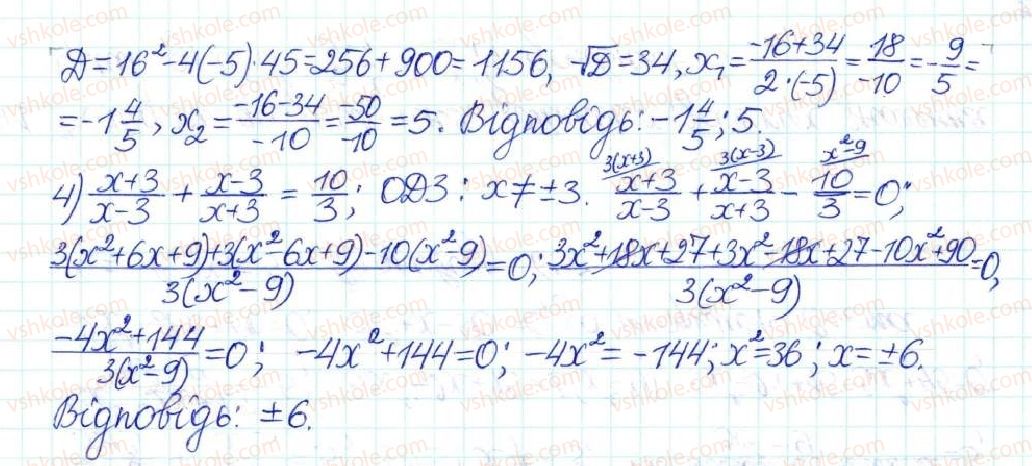 D=16²-4(-5)·45=256+900=1156, √D=34, x₁=(-16+34)/(2·(-5))=18/-10=-9/5=
=-1 4/5, x₂=(-16-34)/-10=-50/-10=5. Відповідь: -1 4/5; 5.
4) (x+3)/(x-3) + (x-3)/(x+3) = 10/3; ОДЗ: x≠±3. 3(x+3)/ (x+3)/(x-3) + 3(x-3)/ (x-3)/(x+3) - x²-9/ 10/3 =0;
(3(x²+6x+9)+3(x²-6x+9)-10(x²-9))/(3(x²-9))=0; (3x²+18x+27+3x²-18x+27-10x²+90)/(3(x²-9))=0,
(-4x²+144)/(3(x²-9))=0; -4x²+144=0; -4x²=-144; x²=36; x=±6.
Відповідь: ±6.